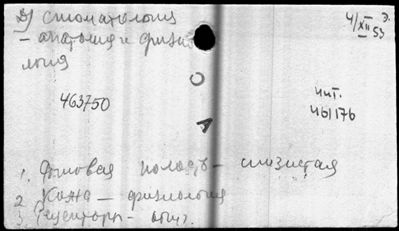 Стоматология
4/XII 53
- анатомия и физио
логия
463750
чит.
461176
1. Ротовая полость - слизистая
2. Кожа - физиология
3. Рецепторы -